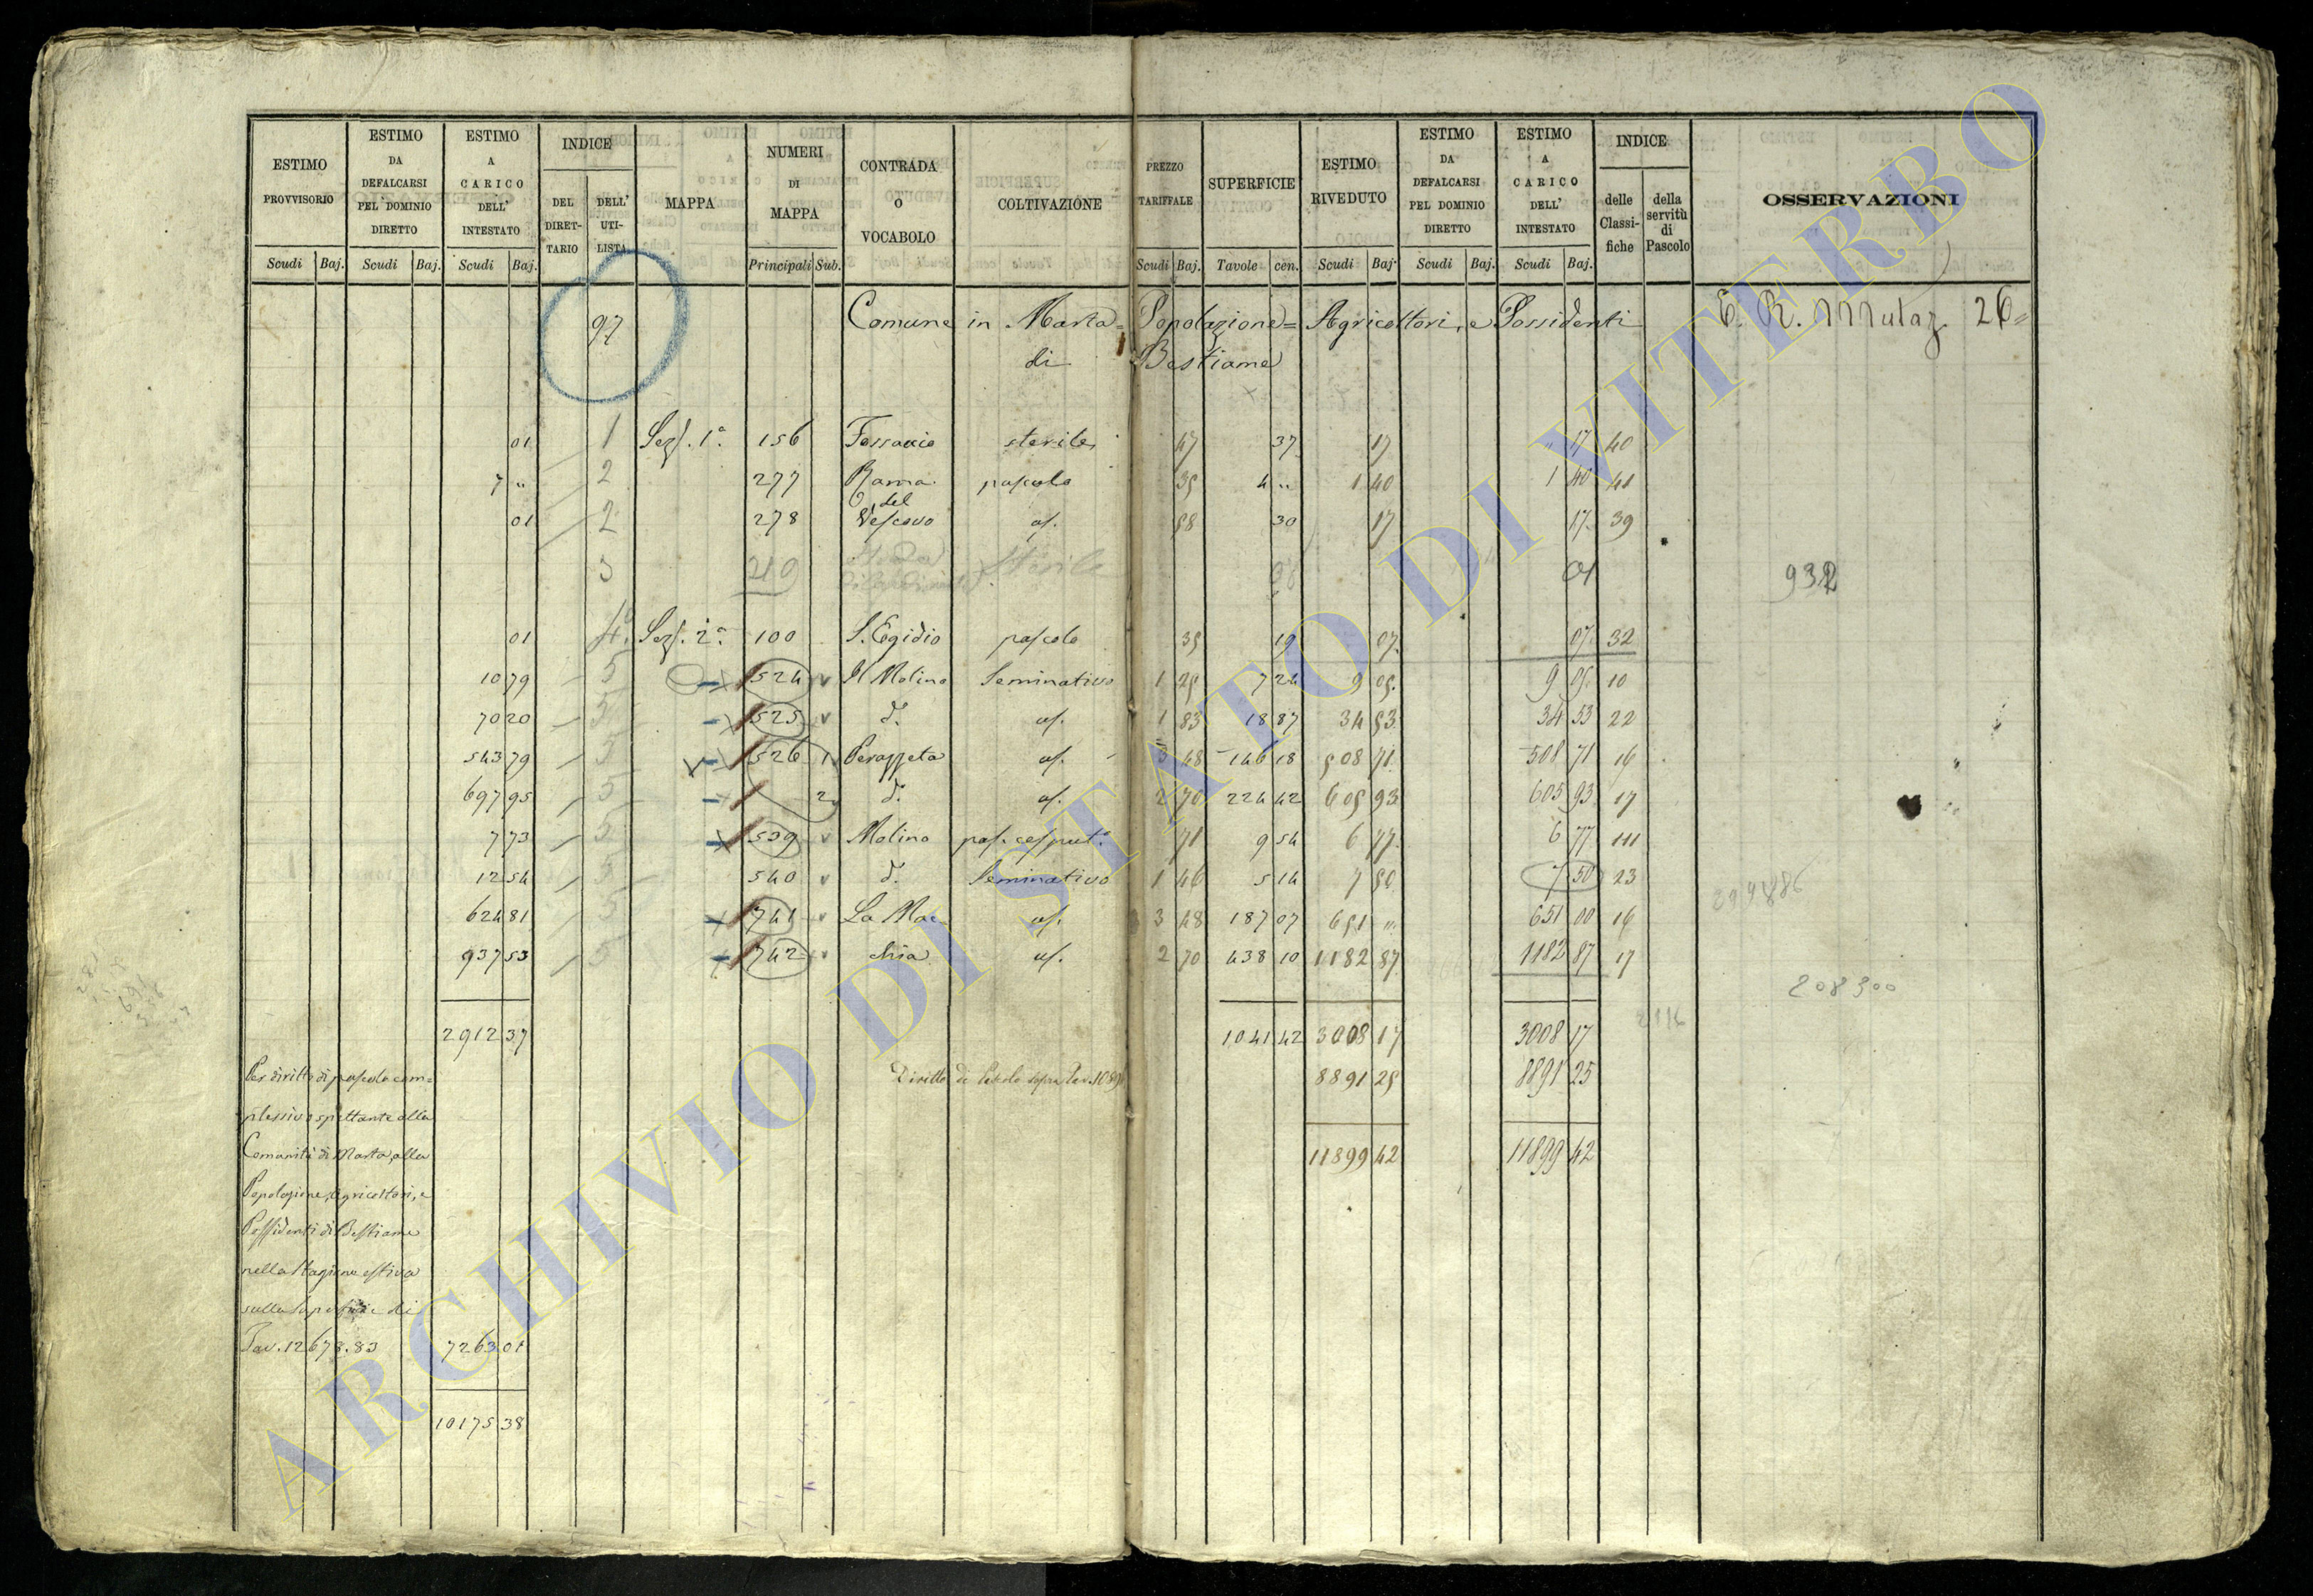 ESTIMO PROVVISORIO | ESTIMO DA DEFALCARSI PEL DOMINIO DIRETTO | ESTIMO A CARICO DELL' INTESTATO | INDICE | MAPPA | NUMERI DI MAPPA | CONTRADA O VOCABOLO | COLTIVAZIONE | PREZZO TARIFFALE | SUPERFICIE | ESTIMO RIVEDUTO | ESTIMO DA DEFALCARSI PEL DOMINIO DIRETTO | ESTIMO A CARICO DELL' INTESTATO | INDICE | OSSERVAZIONI
DEL DIRET-TARIO | DELL' UTI-LISTA | delle Classi-fiche | della servitù di Pascolo
Scudi | Baj. | Scudi | Baj. | Scudi | Baj. | Principali | Sub. | Scudi | Baj. | Tavole | cen. | Scudi | Baj. | Scudi | Baj. | Scudi | Baj.
97 Comune in Marta = Popolazione = Agricoltori, e Possidenti 26
di Bestiame
01 1 Sez. 1a 156 sterile 47 37 17 17 40
7 " 2 277 Banna pascolo 35 4 " 1 40 1 40 41
01 2 278 del Vescovo id. 58 30 17 17 39
3 219 Sterile 01 932
01 4 Sez. 2a 100 S. Egidio pascolo 35 19 07 07 32
10 79 5 524 Il Molino Seminativo 1 25 7 24 9 05 9 05 10
70 20 5 525 d. id. 1 83 18 87 34 53 34 53 22
543 79 5 526 1 Perazzeta id. 3 48 146 18 508 71 508 71 16
697 95 5 2 d. id. 2 70 224 42 605 93 605 93 17
7 73 5 539 Molino pas. cesput. 71 9 54 6 77 6 77 111
12 54 5 540 d. Seminativo 1 46 5 14 7 50 7 50 23
624 81 5 741 La Mac id. 3 48 187 07 651 " 651 00 16
937 53 5 742 chia id. 2 70 438 10 1182 87 1182 87 17
208300
2912 37 1041 42 3008 17 3008 17
Per diritto di pascolo com= Diritto di Pascolo sopra Tav. 8891 25 8891 25
plessivo spettante alla
Comunità di Marta, alla 11899 42 11899 42
Popolazione, Agricoltori, e
Possidenti di Bestiame
nella Stagione estiva
sulla Superficie di
Tav. 12678.83 7263 01
10175 38
ARCHIVIO DI STATO DI VITERBO